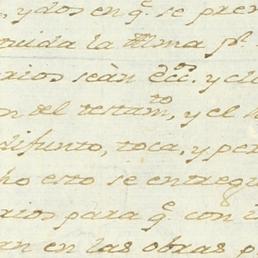 , y dos en q.e se pre
cuida la Alma p.r
rios seàn ecc.os y cl
on del testam.to, y el
difunto, toca, y per
ho esto se entregu
rios para q.e con
an en las obras p